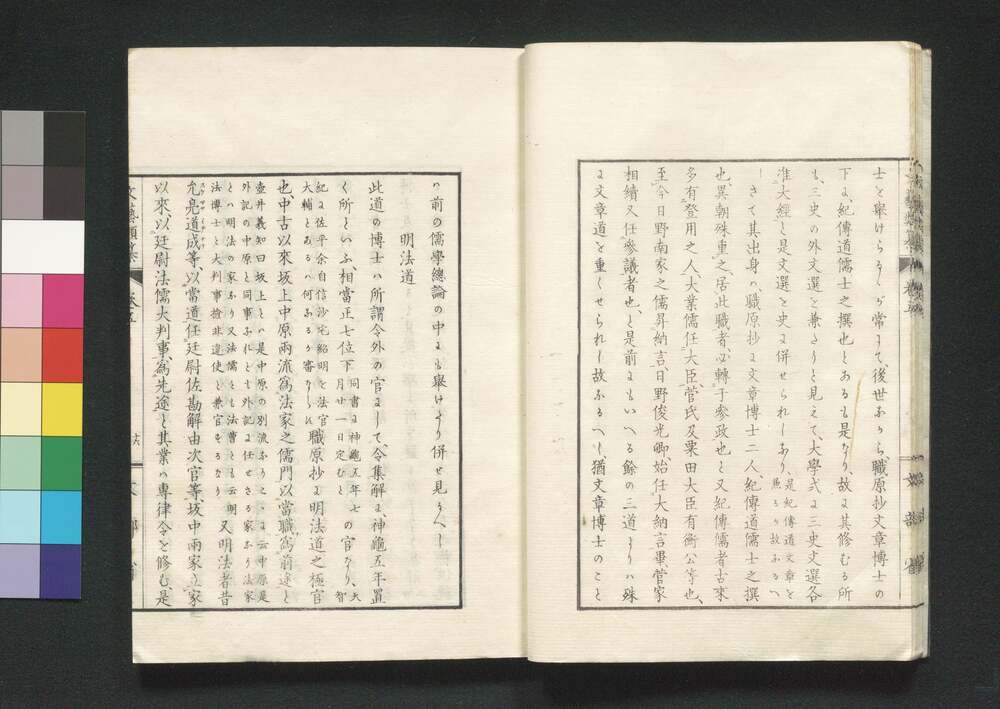 士を擧けらるゝが常にて、後世ながら、職原抄文章博士の
下に、紀傳道儒士之撰也とあるも是なり、故に其修むる所
も、三史の外文選を兼たりと見えて、大學式に三史文選各
准大經と是文選を史に併せられしなり、是紀傳道文章を
兼るの故なるへ
しさて其出身ハ、職原抄に文章博士二人、紀傳道儒士之撰
也、異朝殊重之、居此職者、必轉于參政也と又紀傳儒者古來
多有登用之人、大業儒任大臣、菅氏及粟田大臣有衡公等也、
至今日野南家之儒昇納言、日野俊光卿、始任大納言畢、菅家
相續又任參議者也、と是前にもいへる餘の三道よりハ殊
に文章道を重くせられし故なるへし、猶文章博士のこと
ハ前の儒學總論の中にも擧けたり併せ見るへし
明法道
此道の博士ハ所謂令外の官にして、令集解に、神龜五年置
く所といふ相當正七位下 同書に神龜五年七
月廿一日定むと の官なり、天智
紀に佐平余自信沙宅紹明を法官
大輔とあるハ何なるか審ならす 職原抄に明法道之極官
也、中古以來坂上中原兩流、爲法家之儒門、以當職、爲前途と
壺井義知曰坂上とハ是中原の別流なりこゝに云中原是
外記の中原と同事なれとも外記に任せさる家なり法家
とハ明法の家なり又法儒とも法曹とも云明
法博士と大判事檢非違使と兼官するなり 又明法者昔
允亮道成等、以當道任廷尉佐勘解由次官等、坂中兩家立家
以來、以廷尉法儒大判事、爲先途と其業ハ專律令を修む、是
文藝類纂 卷五
文部省